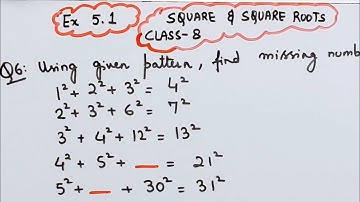 Ex 5.1
SQUARE & SQUARE ROOTS
CLASS-8
Q6: Using given pattern, find missing numb
1² + 2² + 3² = 4²
2² + 3² + 6² = 7²
3² + 4² + 12² = 13²
4² + 5² + __ = 21²
5² + __ + 30² = 31²